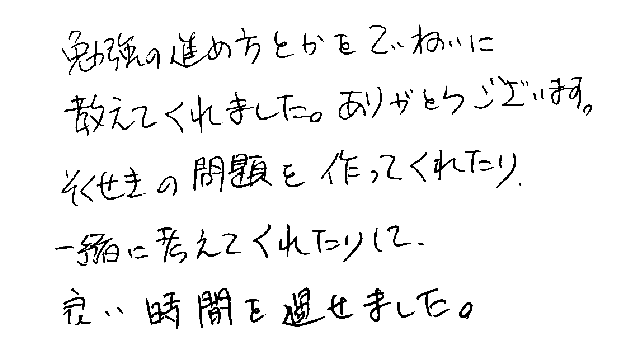 勉強の進め方とかをていねいに
教えてくれました。ありがとうございます。
そくせきの問題を作ってくれたり、
一緒に考えてくれたりして、
良い時間を過せました。